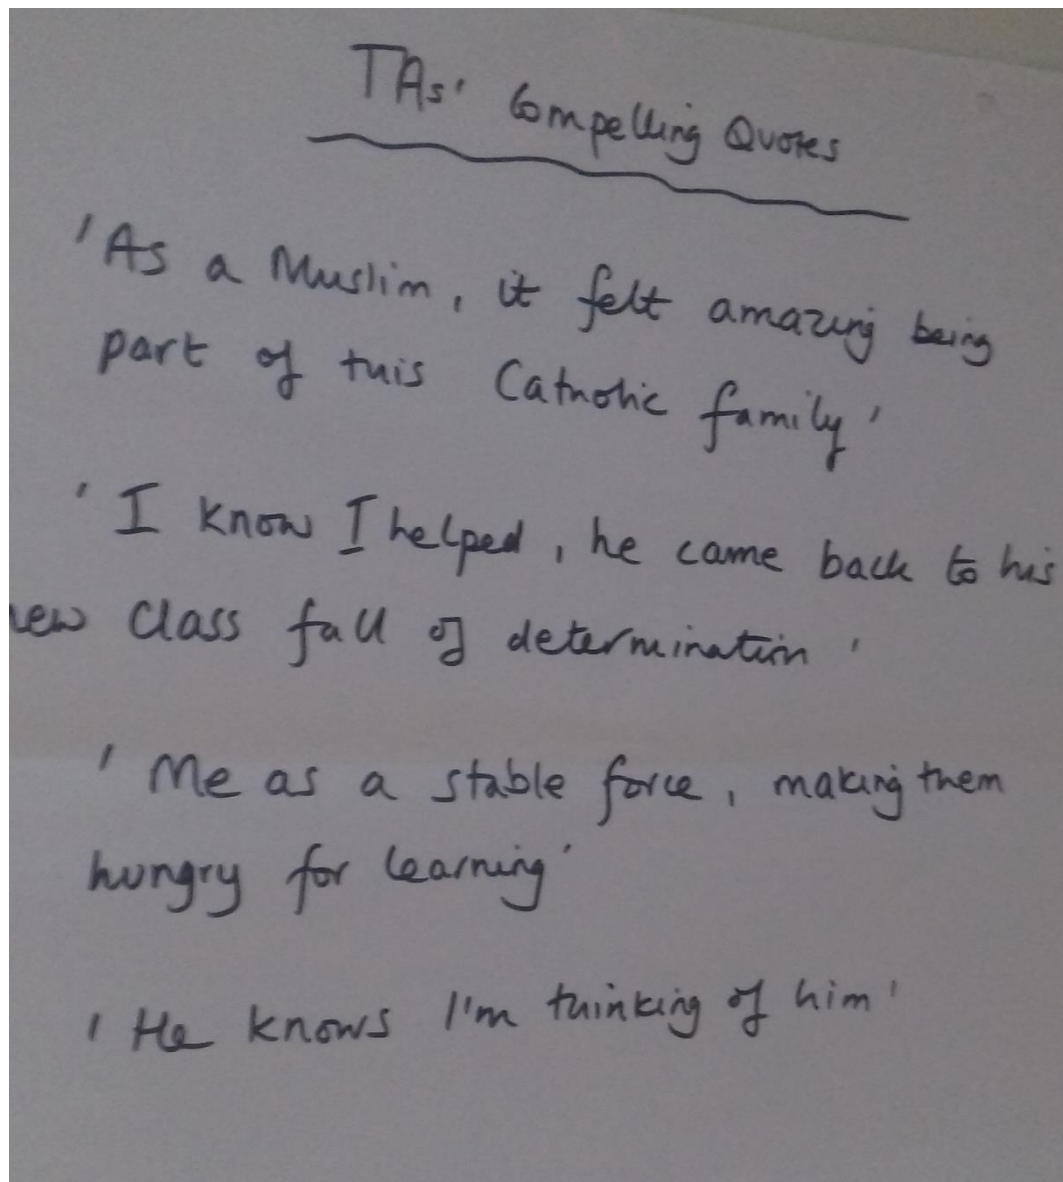 TAs' Compelling Quotes
'As a Muslim, it felt amazing being
part of this Catholic family'
'I know I helped, he came back to his
new Class full of determination'
'Me as a stable force, making them
hungry for learning'
'He knows I'm thinking of him'